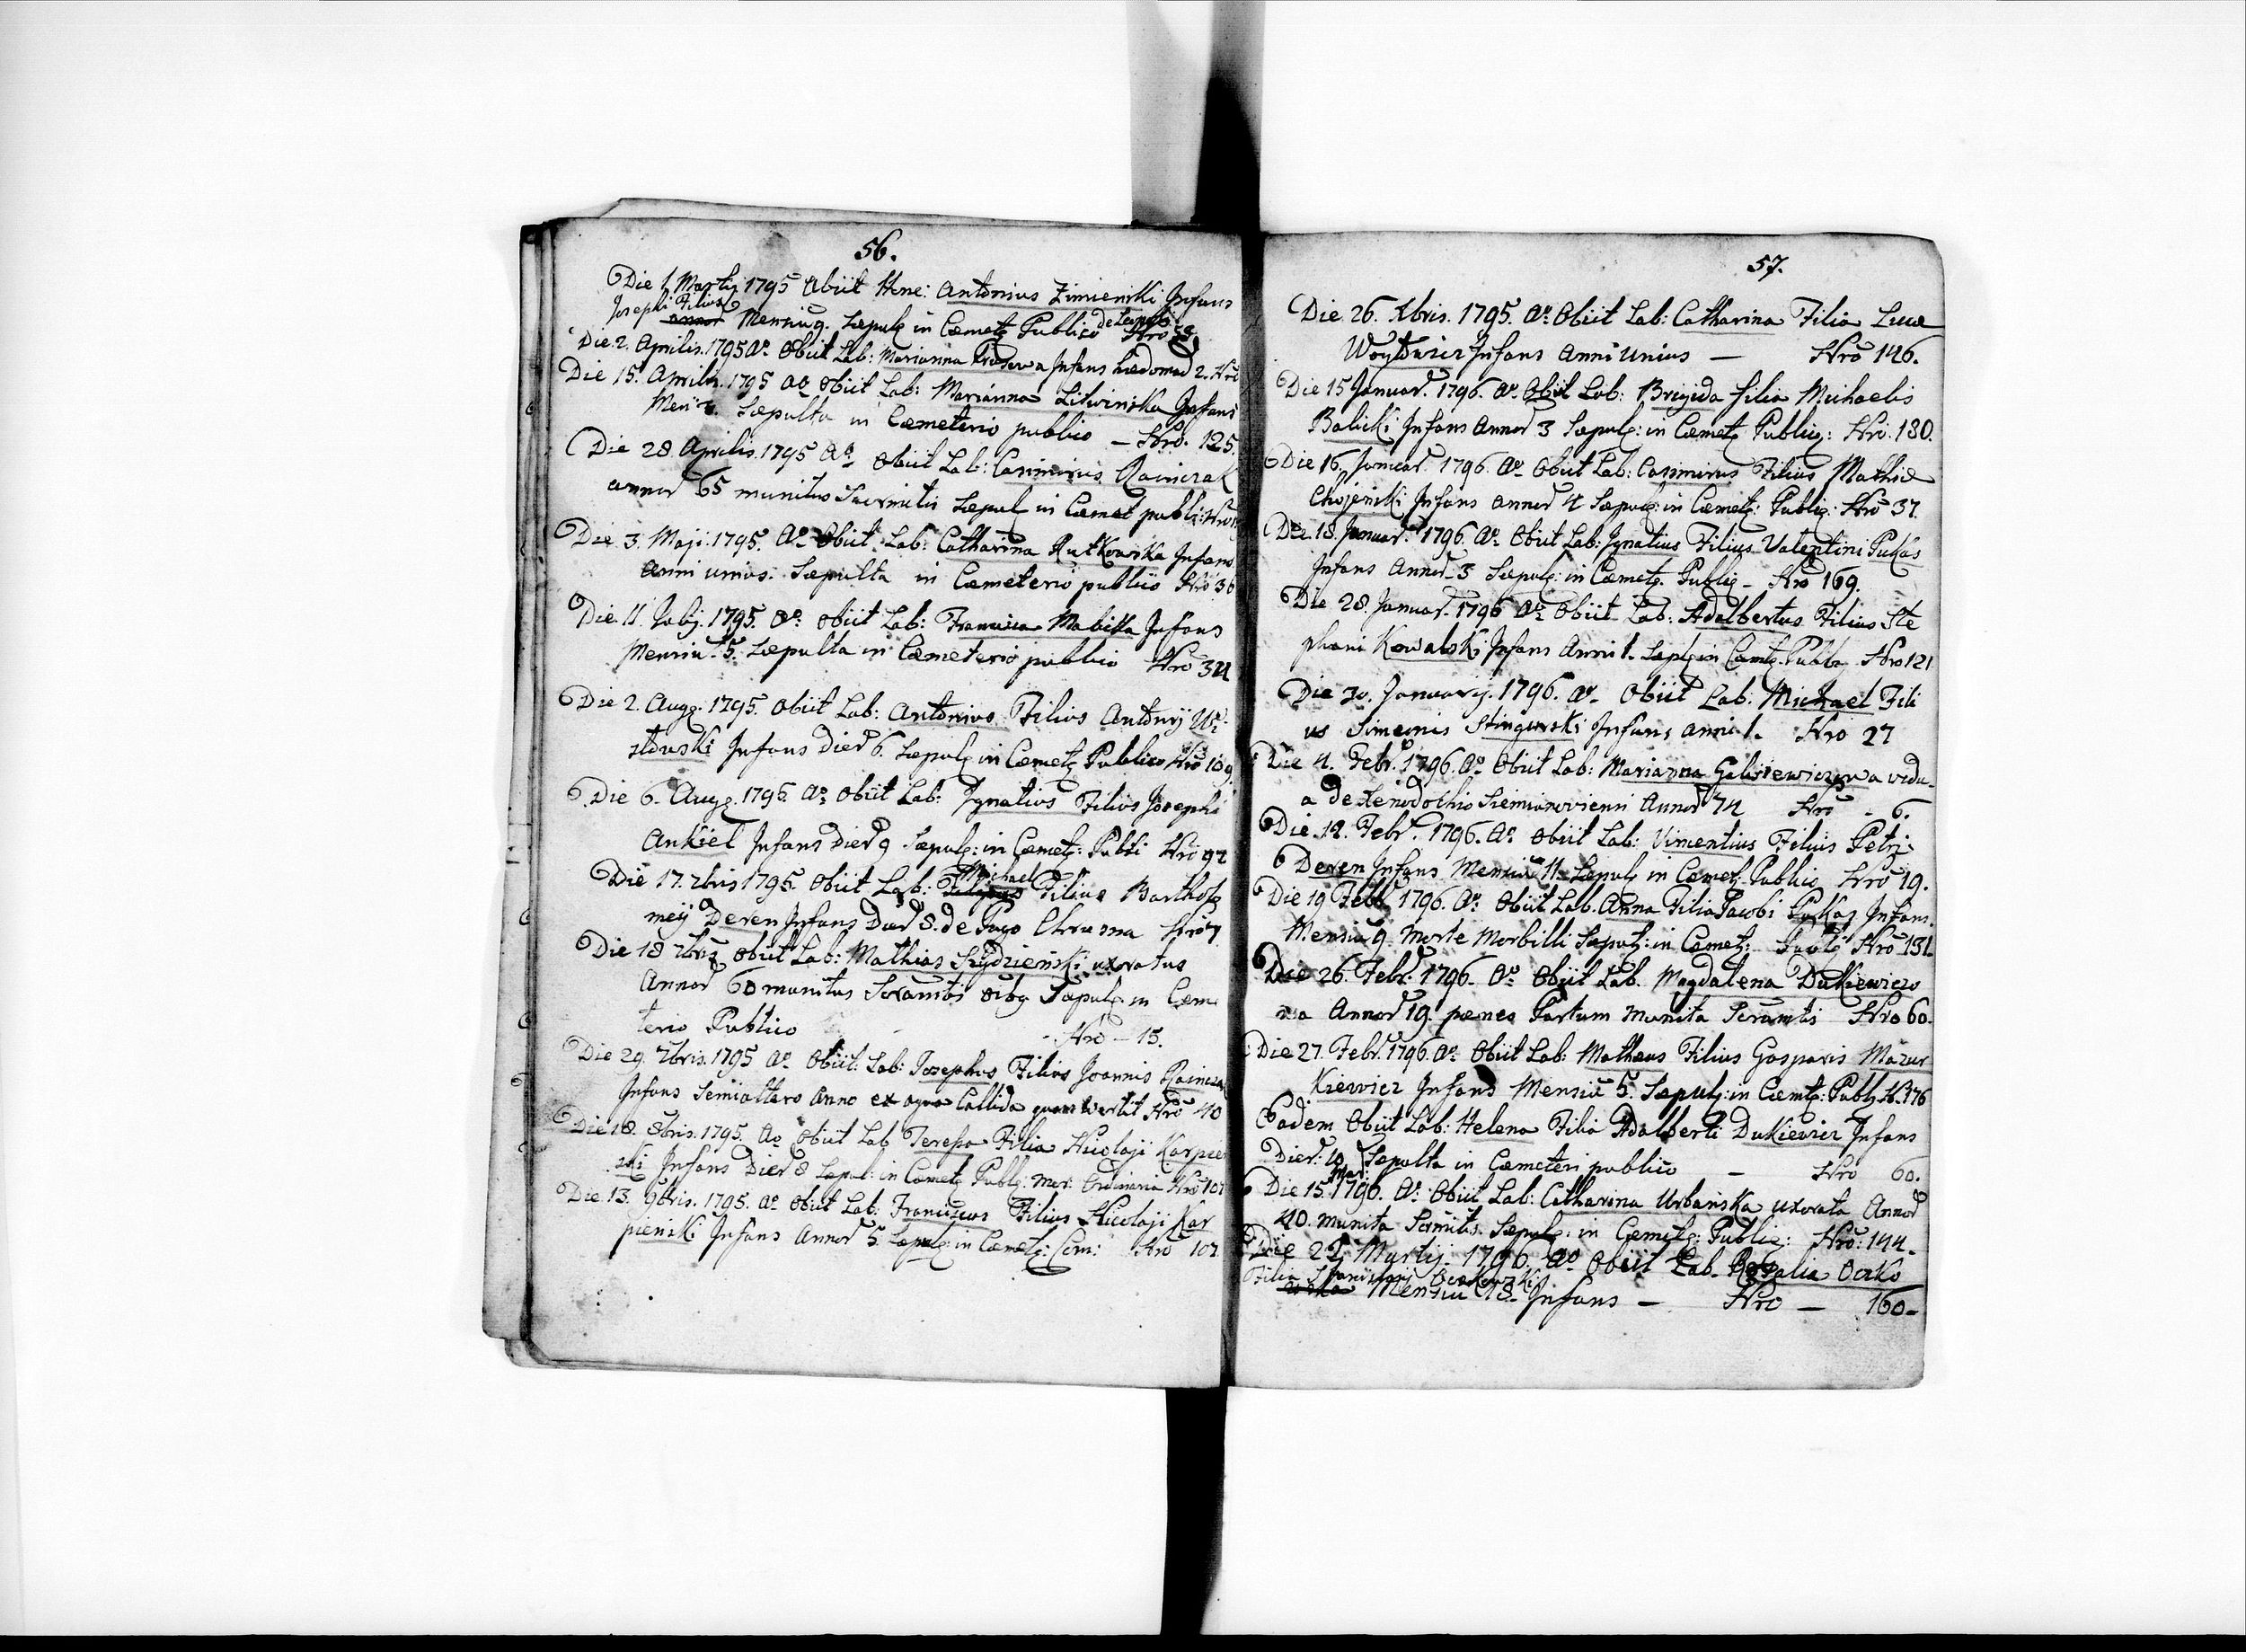 56.
Die 1. Martij 1795 Obiit Gene: Antonius Zimienski Infans
Josephi Filius
annor Mensiu 9. Sepul in Cæmet Publico de Leopoli Nro 58.
Die 2. Aprilis. 1795 Ao Obiit Lab: Marianna Infans hædomad 2. Nro
Die 15. Aprilis. 1795 Ao Obiit Lab: Marianna Litwinska Infans
Men Sæpulta in Cæmeterio publico – Nro. 125.
Die 28 Aprilis. 1795 Ao Obiit Lab: Casimirus Rainczak
annor 65 munitus Sacrmtis Sæpul in Cæmet publi: Nro
Die 3. Maji. 1795. Ao Obiit Lab: Catharina Rutkowska Infans
Anni unius. Sæpulta in Cæmeterio publico Nro 36
Die 11. Julij. 1795. Ao: Obiit Lab: Francisca Mabika Infans
Mensiu. 5. Sæpulta in Cæmeterio publico Nro 34
Die 2. Aug. 1795. Obiit Lab: Antonius Filius Antonij Ur
stowski Infans Dier 6. Sæpul in Cæmet Publico Nro 109.
Die 6. Aug. 1795. Ao: Obiit Lab: Ignatius Filius Josephi
Ankiel Infans Dier 9 Sæpul: in Cæmet: Publi Nro 92
Michael
Die 17. 7bris 1795. Obiit Lab: Filius Bartholo
meij Deren Infans Dier 8. de Pago Chrusna Nro 7
Die 18 7bris Obiit Lab: Mathias Szydzienski uxoratus
Annor 60 munitus Scramtis oibg Sæpul in Cæm
terio Publico Nro – 15.
Die 29. 7bris. 1795 Ao Obiit: Lab: Josephus Filius Joannis Raincza
Infans Semialtero Anno ex aqua Callida Nro 40
Die 18. 8bris. 1795. Ao Obiit Lab Teressa Filia Nicolaji Karpie
ski Infans Dier 8 Sæpul: in Cæmet Publ: mor: Ordinaria Nro 107
Die 13. 9bris. 1795. Ao Obiit Lab: Franciscus Filius Nicolaji Kar
pienski Infans Annor 5. Sæpul: in Cæmet: Com: Nro 107.
57.
Die 26. Xbris. 1795. Ao: Obiit Lab: Catharina Filia Lucæ
Woytowicz Infans Anni Unius – Nro 146.
Die 15 Januar. 1796. Ao. Obiit Lab: Brigida filia Michaelis
Balicki Infans Annor 3 Sæpul: in Cæmet Public: Nro. 130.
Die 16. Januar. 1796. Ao Obiit Lab: Casimirus Filius Mathiæ
Chojenski Infans Annor 4 Sæpul: in Cæmet: Public: Nro 37.
Die. 18. Januar. 1796. Ao. Obiit Lab: Ignatius Filius Valentini Pukas
Infans Annor 3 Sæpul: in Cæmet. Public – Nro 169.
Die 28. Januar. 1796 Ao Obiit Lab: Adalbertus Filius Ste
phani Kowalski Infans Anni 1. Sæpl in Cæmt. Publ. Nro 121
Die 30. Januarij. 1796. Ao. Obiit Lab: Michael Fili
us Simeonis Stingurski Infans anni 1. Nro 27
Die 4. Febr. 1796. Ao Obiit Lab: Marianna vidu
a de Xenodochio Siemianoviensi Annor 74 Nro – 6.
Die 12. Febr. 1796. Ao Obiit Lab: Vincentius Filius Petri
Deren Infans Mensiu 11. Sæpul in Cæmet Public Nro 19.
Die 19 Feb. 1796. Ao Obiit Lab. Anna Filia Jacobi Pukas Infans
Mensiu 9. Morte Morbilli Sæpul: in Cæmet: Publ Nro 131.
Die 26. Febr. 1796. Ao Obiit Lab. Magdalena Dukiewiczo
wa Annor 19. penes Partum munita Scramtis Nro 60.
Die 27. Febr. 1796. Ao: Obiit Lab: Mathæus Filius Gasparis Mazur
Kiewicz Infans Mensiu 5. Sæpul: in Cæmt: Publ N. 176
Eadem Obiit Lab: Helena Filia Adalberti Dukiewicz Infans
Dier: 10. Sæpulta in Cæmeteri publico – Nro 60.
Mar:
Die 15. 1796. Ao: Obiit Lab: Catharina Urbańska uxorata Annor
40. munita Scrmtis Sæpul: in Cæmet: Public: Nro: 144.
Die 22 Martij. 1796. Ao Obiit Lab. Rosalia Ocko
Filia Stanislaij Oczkowski
wska Mensiu 18. Infans – Nro – 160–